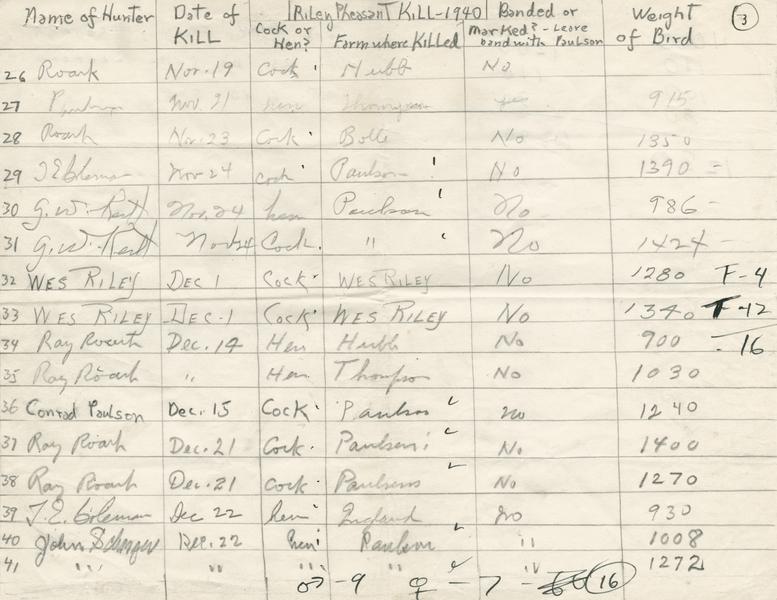 Name of Hunter Date of Kill Riley Pheasant Kill-1940 Banded or Weight 3
Cock or Hen? Farm where Killed Marked? - Leave band with Paulson of Bird
26 Roark Nov. 19 Cock Hubb No
27 Nov. 21 hen Thompson yes 915
28 Roark Nov. 23 Cock Bolte No 1350
29 J E Coleman Nov 24 cock Paulson No 1390
30 G. W. Nov. 24 hen Paulson No 986
31 G. W. Nov 24 Cock " No 1424
32 WES RILEY DEC 1 Cock WES RILEY No 1280 F-4
33 WES RILEY DEC-1 Cock WES RILEY No 1340 F-12
34 Ray Roark Dec. 14 Hen Hubb No 900 -16
35 Ray Roark " Hen Thompson No 1030
36 Conrad Paulson Dec. 15 Cock Paulson no 1240
37 Ray Roark Dec. 21 Cock Paulsens No 1400
38 Ray Roark Dec. 21 Cock Paulsens No 1270
39 J. E. Coleman Dec 22 hen England no 930
40 John Dec. 22 hen Paulson " 1008
41 " " " " " " 1272
♂ -9 ♀ -7 - 16